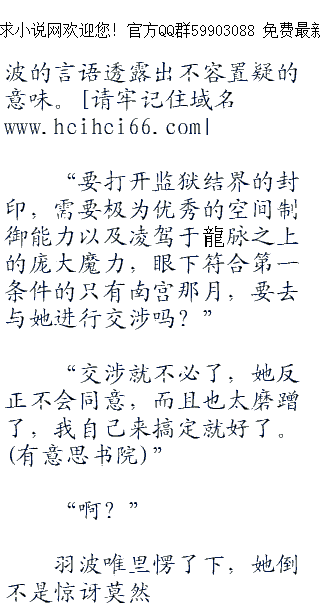 求小说网欢迎您！官方QQ群59903088 免费最新
波的言语透露出不容置疑的
意味。[请牢记住域名
www.hcihci66.com|
“要打开监狱结界的封
印，需要极为优秀的空间制
御能力以及凌驾于龍脉之上
的庞大魔力，眼下符合第一
条件的只有南宫那月，要去
与她进行交涉吗？”
“交涉就不必了，她反
正不会同意，而且也太磨蹭
了，我自己来搞定就好了。
(有意思书院)”
“啊？”
羽波唯里愣了下，她倒
不是惊讶莫然